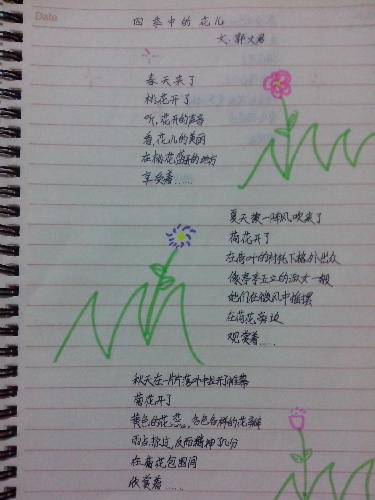 Date
四季中的花儿
文·郭文君
春天来了
桃花开了
听,花开的声音
看,花儿的美丽
在桃花盛开的地方
享受着……
夏天被一阵风吹来了
荷花开了
在荷叶的衬托下格外出众
像亭亭玉立的淑女一般
她们在微风中摇摆
在荷花旁边
观赏着……
秋天在一片片落叶中拉开了帷幕
菊花开了
黄色的花蕊,各色各样的花瓣
雨点掠过,反而精神几分
在菊花包围间
欣赏着……